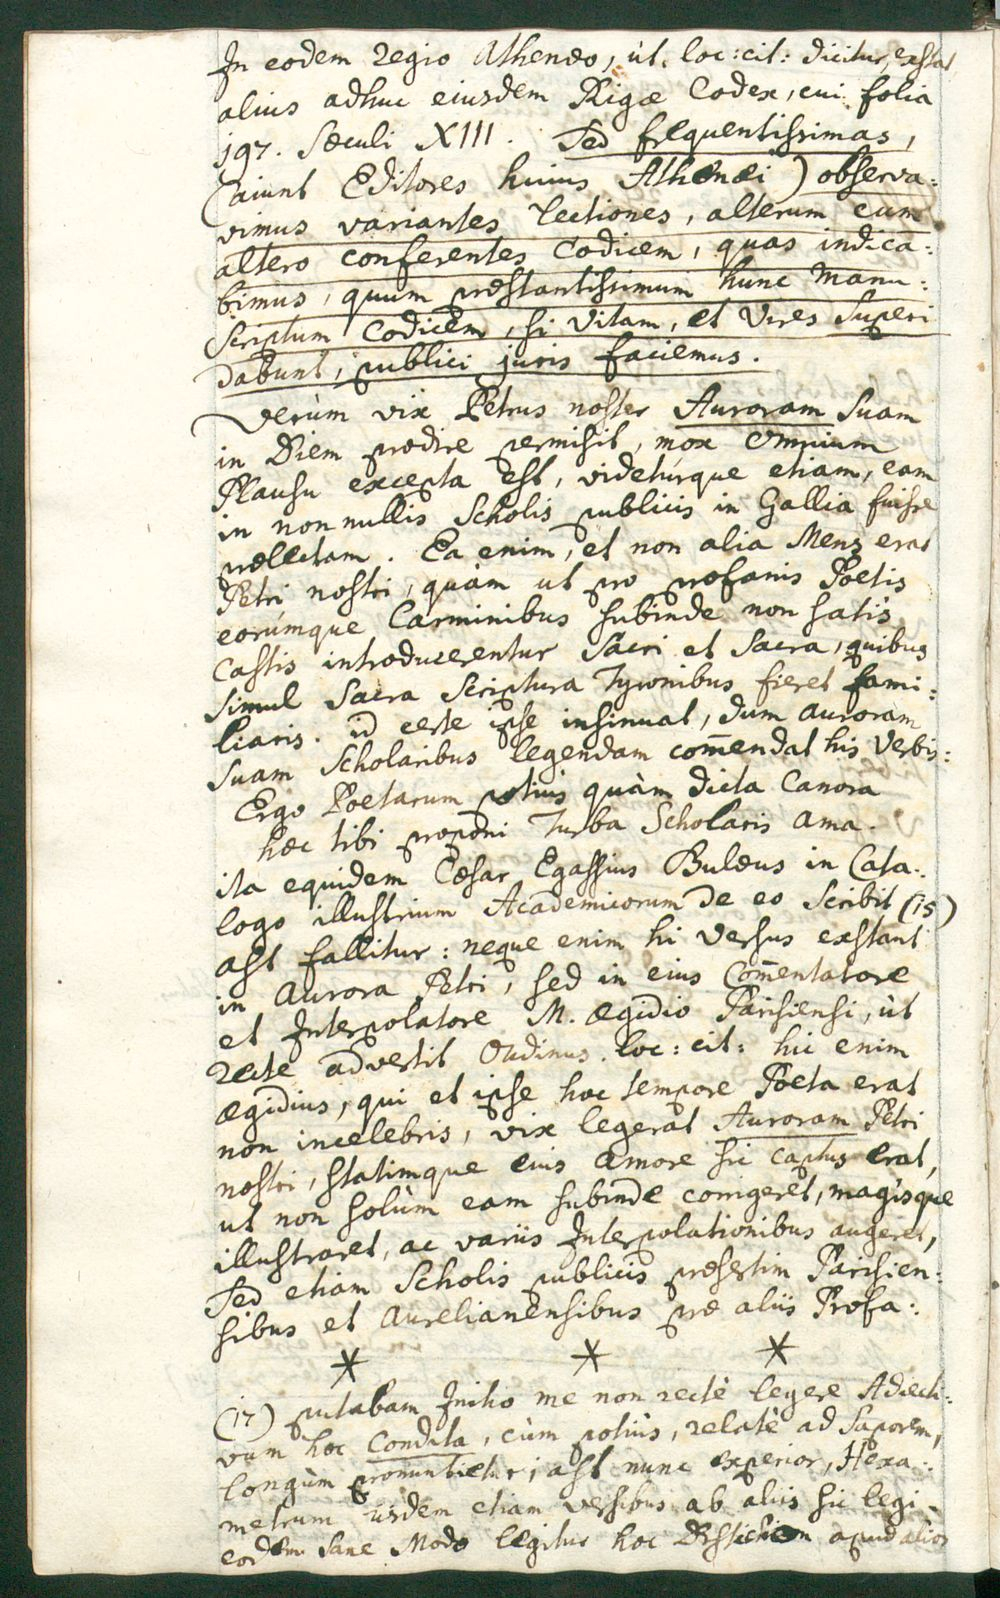 In eodem Regio Athenæo, ùt loc:cit: dicitur, exstat
alius adhuc eiusdem Rigæ Codex, cui folia
197. Sæculi XIII. Sed frequentissimas,
(aiunt Editores huius Athenæi) observa:
vimus variantes lectiones, alterum cum
altero conferentes Codicem, quas indica:
bimus, quum præstantissimum hunc Manu:
scriptum Codicem, si Vitam, et Vires Superi
Dabunt, publici juris faciemus.
Verùm vix Petrus noster Auroram Suam
in Diem prodire permisit, mox omnium
Plausu excepta est, videtúrque etiam, eam
in nonnullis Scholis publicis in Gallia fuisse
prælectam. Ea enim, et non alia Mens erat
Petri nostri, quàm ut pro profanis Poetis
eorúmque Carminibus subinde non satis
Castis introducerentur Sacri et Sacra, quibus
simul Sacra Scriptura Tyronibus fieret fami:
liaris. id certe ipse insinuat, dum auroram
suam Scholaribus legendam com̄endat his Verbis:
Ergo Poetarum potius quàm dicta Canora
hæc tibi proponi Turba Scholaris ama.
ita equidem Cæsar Egassius Bulæus in Cata:
logo illustrium Academicorum de eo Scribit (15)
ast fallitur: neque enim hi Versus exstant
in Aurora Petri, sed in eius Com̄entatore
et Interpolatore M. Ægidio Parisiensi, ùt
recte advertit Oudinus loc:cit: hic enim
Ægidius, qui et ipse hoc tempore Poeta erat
non incelebris, vix legerat Auroram Petri
nostri, statimque eius amore sic captus erat,
ut non solùm eam subinde corrigeret, magisque
illustraret, ac variis Interpolationibus augeret,
Sed etiam Scholis publicis præsertim Parisien:
sibus et Aurelianensibus præ aliis Profa:
* * *
(17) putabam Initio me non rectè legere Adiecti:
vum hoc Condita, cùm potiùs, relatè ad Saporem,
longùm pronuntietur; ast nunc experior, Hexa:
metrum iisdem etiam versibus ab aliis sic legi
eodem sane Modo legitur hoc Distichon apud alios